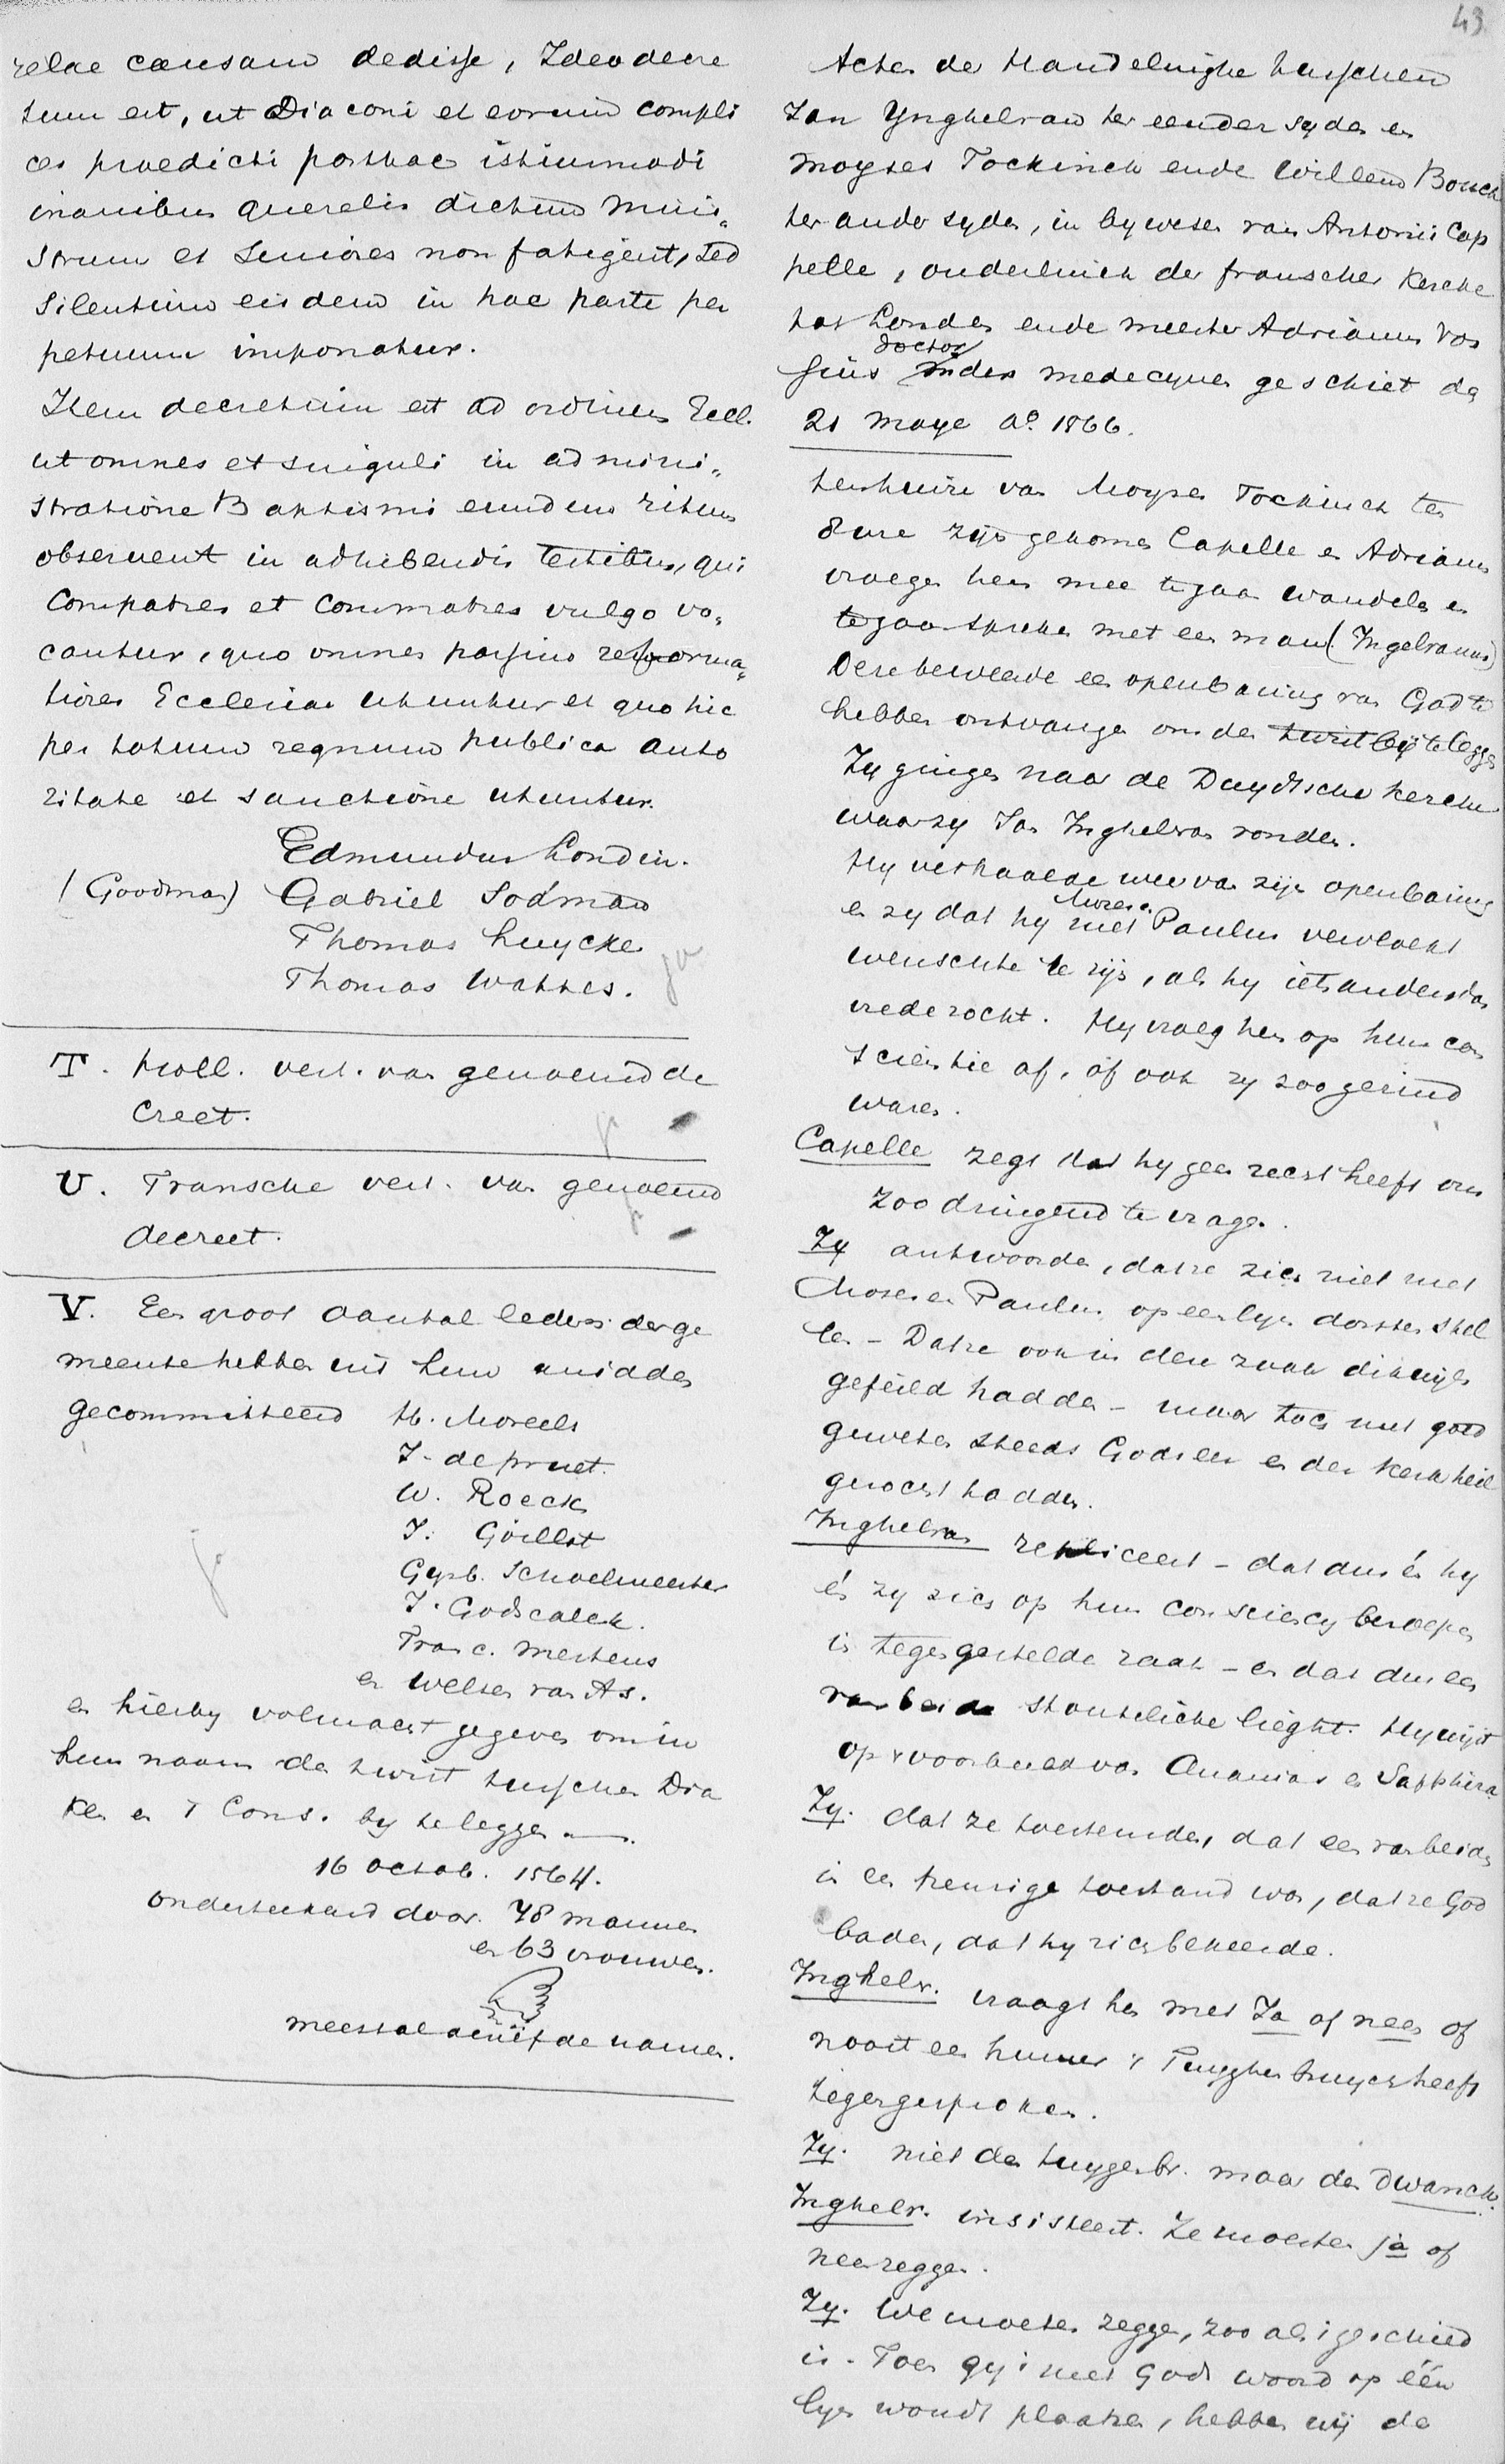 43.
relae causam dedisse, Ideo decre
tum est, ut Diaconi et eorum compli
ces praedicti posthac istiusmodi
inanibus querelis dictum Minis„
strum et Seniores non fatigent, sed
silentium eisdem in hac parte per
petuum imponatur.
Item decretum est ad ordinem Eccl.
ut omnes et singuli in admini„
stratione Baptismi eundem ritum
observent in adhibendis testibus, qui
Compatres et Commatres vulgo vo„
cantur, quo omnes passim reforma„
tiores Ecclesiae utuntur et quo hic
per totum regnum publica auto
ritate et sanctione utuntur.
Edmundus Londin.
(Goodman) Gabriel Godman
Thomas Huycke
Thomas Wattes.
T. Holl. vert. van genoemd de
creet.
U. Fransche vert. van genoemd
decreet.
V. Een groot aantal leden der ge
meente hebben uit hun midden
gecommitteerd H. Moreels
J. de pruet.
W. Roeck
J. Goillot
Gysb. Schoelmeester
J. Godscalck.
Franc. Mertens
en Welter van As.
en hierby volmacht gegeven om in
hun naam den twist tusschen Dia
ken en 't Cons. by te leggen —.
16 octob. 1564.
onderteekend door 78 mannen
en 63 vrouwen.
meestal de namen.
Acten der Handelinghe tusschen
Jan Ynghelram ter eender syden en
Moyses Fockinck ende Willem Bouch
ter ander syden, in bywesen van Antonii Cap
pelle, ouderlinck der franscher Kercke
tot Londen ende meester Adrianus Vos
sius doctor inder medecynen geschiet den
21 Maye Ao. 1566.
Ten huize van Moyses Fockinck ten
8 ure zijn gekomen Capelle en Adrianus
vroegen hen mee te gaan wandelen en
te gaan spreken met een man (Ingelramus)
Deze beweerde een openbaring van God te
hebben ontvangen om den twist bij te leggen
Zy gingen naar de Duydtsche kercke
waar zy Jan Inghelram vonden.
Hy verhaalde weer van zijn openbaring
en zy dat hy met Moses en Paulus vervloekt
wenschte te zijn, als hy iets anders dan
vrede zocht. Hy vroeg hen op hun con
scientie af, of ook zy zoo gezind
waren.
Capelle zegt dat hy geen recht heeft om
zoo dringend te vragen.
Zy antwoorden, dat ze zich niet met
Moses en Paulus op een lijn dorsten stel
len - Dat ze ook in deze zaak dikwijls
gefeild hadden - maar toch met goed
geweten steeds Gods eer en der kerk heil
gezocht hadden.
Inghelram repliceert - dat dus én hy
én zy zich op hun consciency beroepen
in tegengestelde zaak - en dat dus een
van beide stouteliche lieght. Hy wijst
op 't voorbeeld van Ananias en Sapphira
Zy. dat ze toestemden, dat een van beiden
in een treurige toestand was, dat ze God
baden, dat hy zich bekeerde.
Inghelr. vraagt hen met Ja of neen of
nooit een hunner 't Tuyghen bruyck heeft
tegengesproken.
Zy. niet den tuygenbr. maar den Dwanck.
Inghelr. insisteert. Ze moeten ja of
neen zeggen.
Zy. We moeten zeggen, zoo als 't geschied
is. Toen gy 't met Gods woord op één
lijn woudt plaatsen, hebben wij de